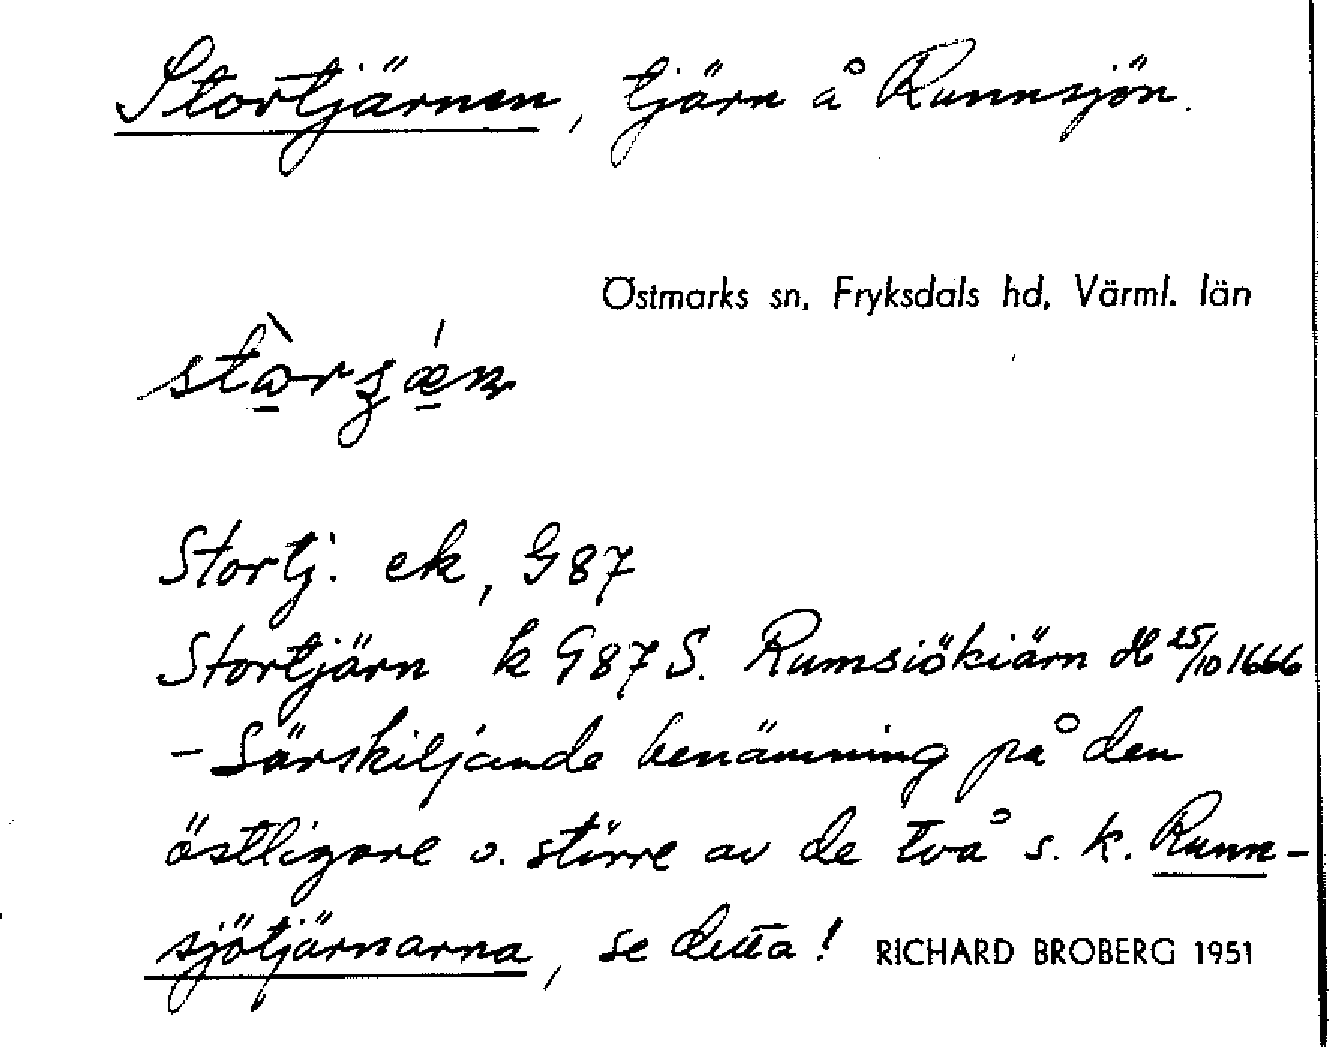 Stortjärnen, tjärn å Runnsjön.
Östmarks sn, Fryksdals hd, Värml. län
Stortj. ek, G87
Stortjärn k G87 S. Rumsiökiärn db 25/10 1666
- Särskiljande benämning på den
östligare o. större av de två s. k. Runn-
sjötjärnarna, se detta! RICHARD BROBERG 1951